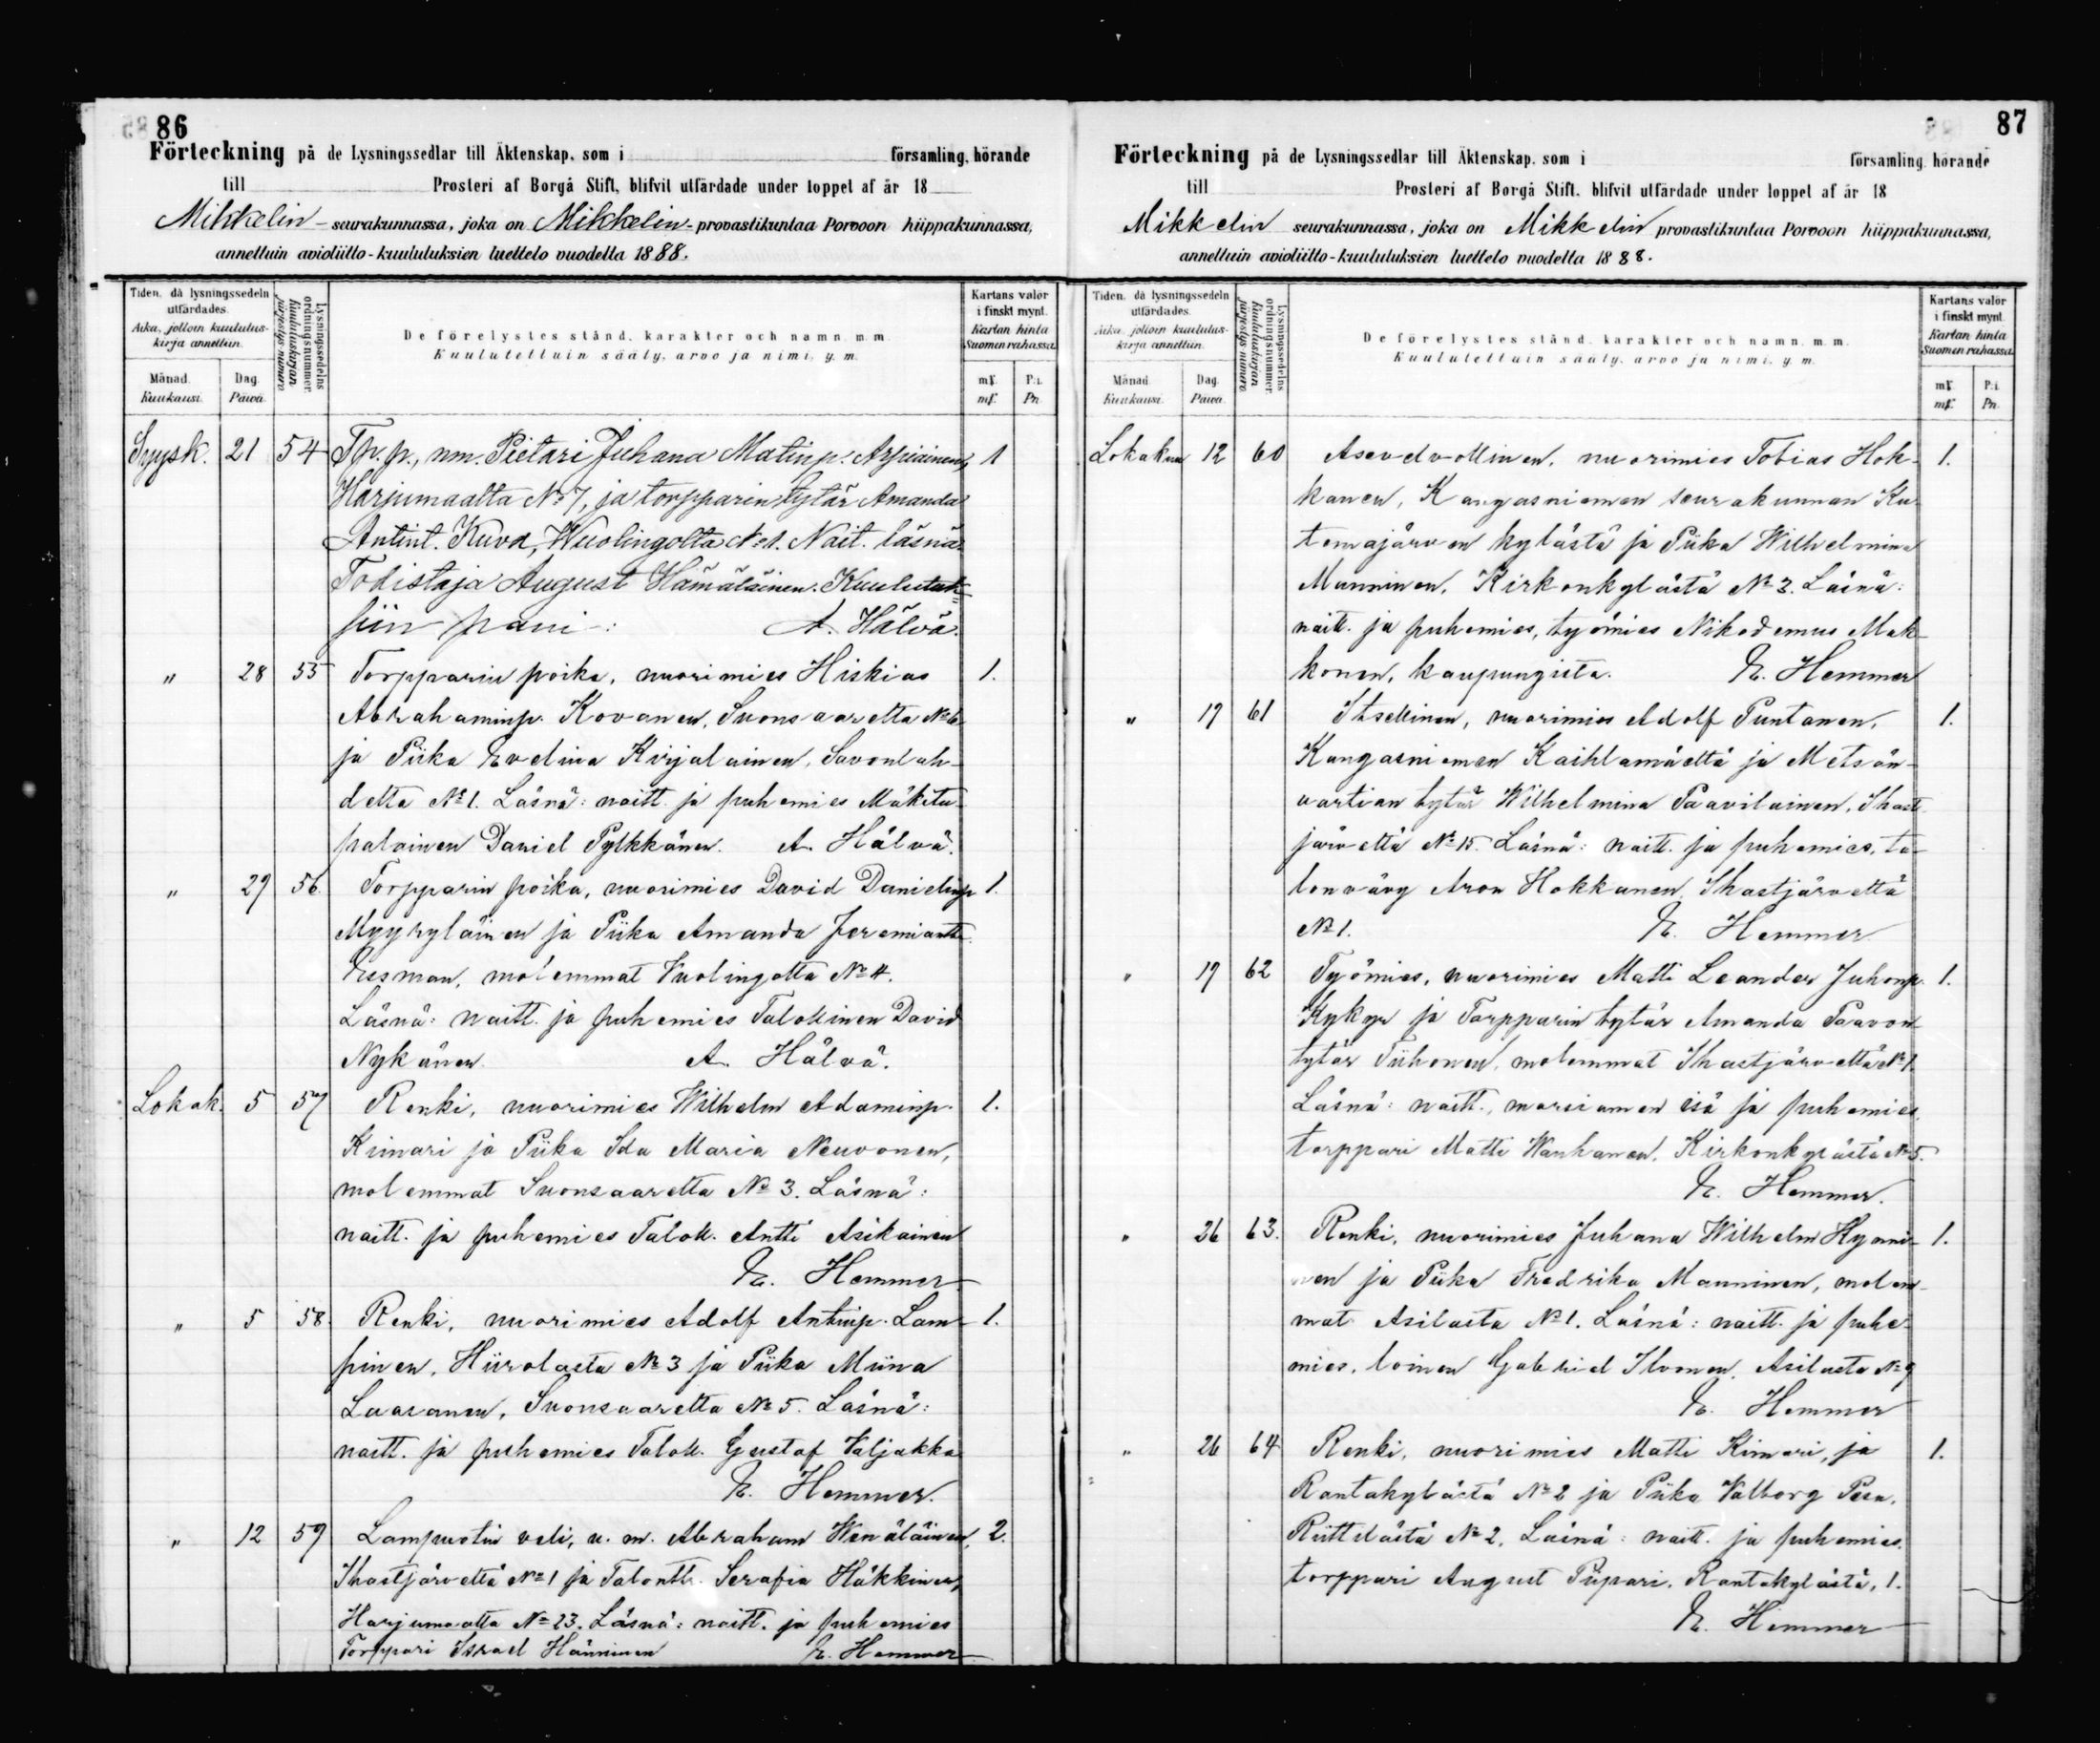 86
Förteckning på de Lysningssedlar till Äktenskap, som i församling, hörande
till Prosteri af Borgå Stift, blifvit utfärdade under loppet af år 18
Mikkelin - seurakunnassa, joka on Mikkelin - provastikuntaa Porvoon hiippakunnassa,
annettuin avioliitto-kuulutuksien luettelo vuodelta 1888.
Tiden, då lysningssedeln utfärdades.
Aika, jolloin kuulutus-kirja annettiin.
Månad. Kuukausi.
Dag. Päivä.
Lysningssedelns ordningsnummer.
Kuulutuskirjan järjestys numero
De förelystes stånd, karakter och namn m. m.
Kuulutettuin sääty, arvo ja nimi, y. m.
Kartans valör i finskt mynt.
Kartan hinta Suomen rahassa.
mf. P:i.
mf. Pn.
Syysk. 21 54 Tp. p., nm. Pietari Juhana Matinp. Arpiainen, 1
Harjumaalta No 7, ja torpparin tytär Amanda
Antint. Kuva, Wuolingolta No 1. Nait. läsnä.
Todistaja August Hämäläinen. Kuulutuk-
siin pani: A. Hälvä.
" 28 55 Torpparin poika, nuorimies Hiskias 1.
Abrahaminp. Kovanen, Suonsaarelta No 6
ja Piika Evelina Kirjalainen, Savonlah-
delta No 1. Läsnä: naitt. ja puhemies Mäkitu-
palainen Daniel Pylkkänen. A. Hälvä.
" 29 56 Torpparin poika, nuorimies David Danielinp 1.
Myyryläinen ja Piika Amanda Jeremiantr.
molemmat Vuolingolta No 4.
Läsnä: naitt. ja puhemies Talollinen David
Nykänen. A. Hälvä.
Lokak. 5 57 Renki, nuorimies Wilhelm Adaminp. 1.
Kimari ja Piika Ida Maria Neuvonen,
molemmat Suonsaarelta No 3. Läsnä:
naitt. ja puhemies Taloll. Antti Asikainen
E. Hemmer
" 5 58. Renki, nuorimies Adolf Antinp. Lam- 1.
pinen, Hiirolasta No 3 ja Piika Miina
Laasanen, Suonsaarelta No 5. Läsnä:
naitt. ja puhemies Taloll. Gustaf Valjakka
E. Hemmer.
" 12 59 Lampuotin veli, n. m. Abraham Wenäläinen, 2.
Ihastjärveltä No 1 ja Talontr. Serafia Häkkinen,
Harjumaalta No 23. Läsnä: naitt. ja puhemies
Torppari Israel Hänninen E. Hemmer
87
Förteckning på de Lysningssedlar till Äktenskap, som i församling, hörande
till Prosteri af Borgå Stift, blifvit utfärdade under loppet af år 18
Mikkelin seurakunnassa, joka on Mikkelin provastikuntaa Porvoon hiippakunnassa,
annettuin avioliitto-kuulutuksien luettelo vuodelta 1888.
Tiden, då lysningssedeln utfärdades.
Aika, jolloin kuulutus-kirja annettiin.
Månad. Kuukausi.
Dag. Päivä.
Lysningssedelns ordningsnummer.
Kuulutuskirjan järjestys numero
De förelystes stånd, karakter och namn, m. m.
Kuulutettuin sääty, arvo ja nimi, y. m.
Kartans valör i finskt mynt.
Kartan hinta Suomen rahassa.
mf. P:i.
mf. Pn.
Lokakuu 12 60 Asevelvollinen, nuorimies Tobias Hok- 1.
kanen, Kangasniemen seurakunnan Ku-
temajärven kylästä ja Piika Wilhelmina
Manninen, Kirkonkylästä No 3. Läsnä:
naitt. ja puhemies, työmies Nikodemus Mak-
konen, kaupungista. E. Hemmer
" 19 61 Itsellinen, nuorimies Adolf Puntanen, 1.
Kangasniemen Kaihlamäeltä ja Metsän-
vartian tytär Wilhelmina Paavilainen, Ihast-
järveltä No 15. Läsnä: naitt. ja puhemies, ta-
lonväog Aron Hokkanen, Ihastjärveltä
No 1. E. Hemmer
" 19 62 Työmies, nuorimies Matti Leander Juhonp. 1.
Kykyr ja Torpparin tytär Amanda Paavon-
tytär Tiihonen, molemmat Ihastjärveltä No 1.
Läsnä: naitt., morsiamen isä ja puhemies,
torppari Matti Wanhanen, Kirkonkylästä No 5.
E. Hemmer.
" 26 63. Renki, nuorimies Juhana Wilhelm Hynni- 1.
nen ja Piika Fredrika Manninen, molem-
mat Asilasta No 1. Läsnä: naitt. ja puhe-
mies, loinen Gabriel Ilvonen, Asilasta No 9
E. Hemmer
" 26 64 Renki, nuorimies Matti Kimari, ja 1.
Rantakylästä No 2 ja Piika Valborg Pesu,
Riittilästä No 2. Läsnä: naitt. ja puhemies,
torppari August Piipari, Rantakylästä, 1.
E. Hemmer